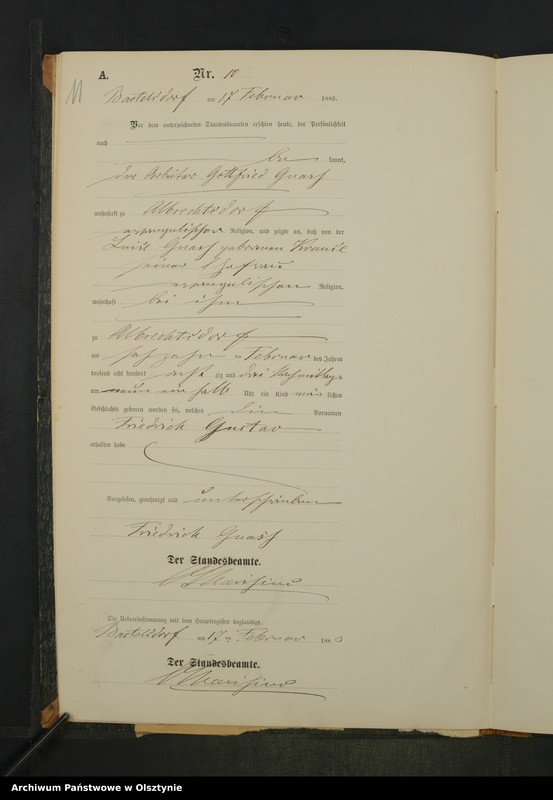 11
A. Nr. 10
Bartelsdorf am 17 Februar 1883.
Vor dem unterzeichneten Standesbeamten erschien heute, der Persönlichkeit
nach
be kannt,
der Arbeiter Gottfried
wohnhaft zu Albrechtsdorf
evangelischer Religion, und zeigte an, daß von der
Luise geborenen Krause
seiner Ehefrau
evangelischen Religion,
wohnhaft bei ihm
zu Albrechtsdorf
am sechzehn ten Februar des Jahres
tausend acht hundert acht zig und drei Nachmittags
um neun ein halb Uhr ein Kind männ lichen
Geschlechts geboren worden sei, welches die Vornamen
Friedrich Gustav
erhalten habe
Vorgelesen, genehmigt und unterschrieben
Friedrich
Der Standesbeamte.
Die Uebereinstimmung mit dem Hauptregister beglaubigt.
Bartelsdorf am 17 ten Februar 1883
Der Standesbeamte.
Archiwum Państwowe w Olsztynie